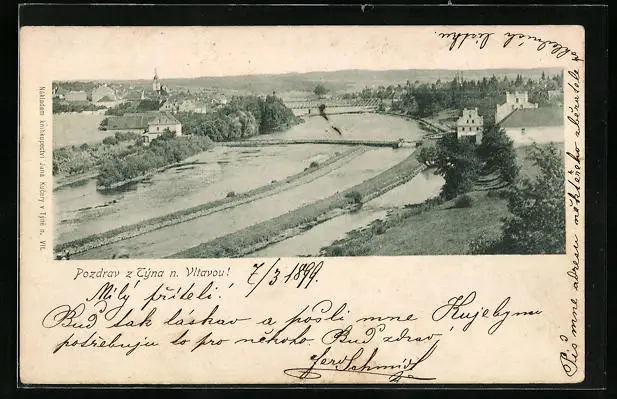 Nákladem knihkupectví Jana Kodory v Týně n. Vlt.
Pozdrav z Týna n. Vltavou!
7/3 1899
Milý příteli!
Buď tak láskav a pošli mne
potřebuju to pro někoho. Buď zdráv,
Schmidt
Piš mne adresu některého sběratele
lístku